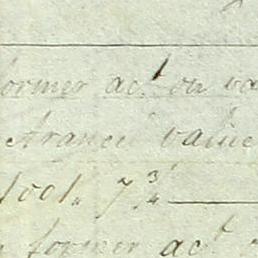 former act on va
Arance value
1001. 7 3/4
former act